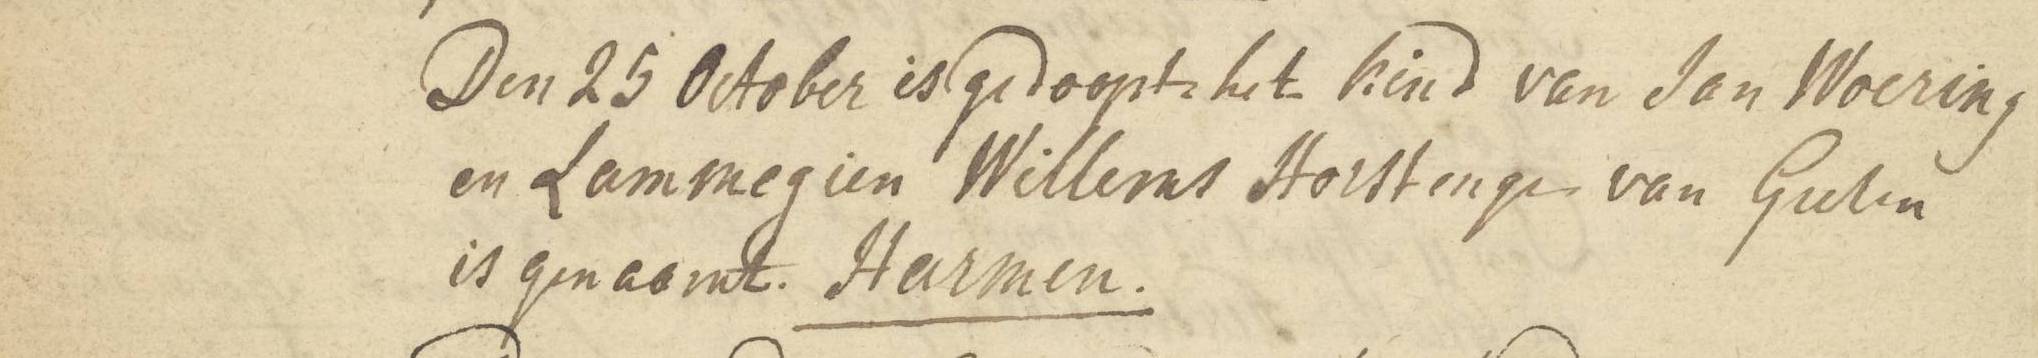 Den 25 October is gedoopt het kind van Jan Woering
en Lammegien Willems Horstenge van Gelen
is genaamt. Harmen.